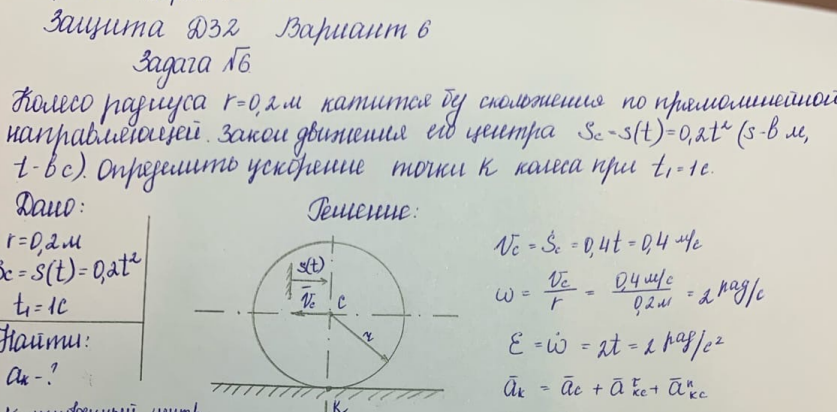 Защита ДЗ2 Вариант 6
Задача №6
Колесо радиуса r=0,2м катится без скольжения по прямолинейной
направляющей. Закон движения его центра Sc=s(t)=0,2t² (s-в м,
t-в с). Определить ускорение точки К колеса при t₁=1с.
Дано:
r=0,2м
Sc=s(t)=0,2t²
t₁=1с
Найти:
aк-?
Решение:
s(t)
V̄c
C
r
K
Vc = Ṡc = 0,4t = 0,4 м/с
ω = Vc/r = 0,4 м/с / 0,2м = 2 рад/с
Ɛ = ω̇ = 2t = 2 рад/с²
āк = āc + ā^τ кс + ā^n кс